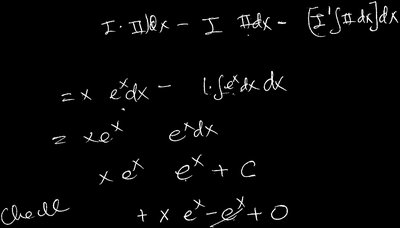 I · II)dx - I IIdx - [I'∫IIdx]dx
= x e^x dx - 1·∫e^x dx dx
= xe^x e^x dx
x e^x e^x + C
Check + x e^x - e^x + 0